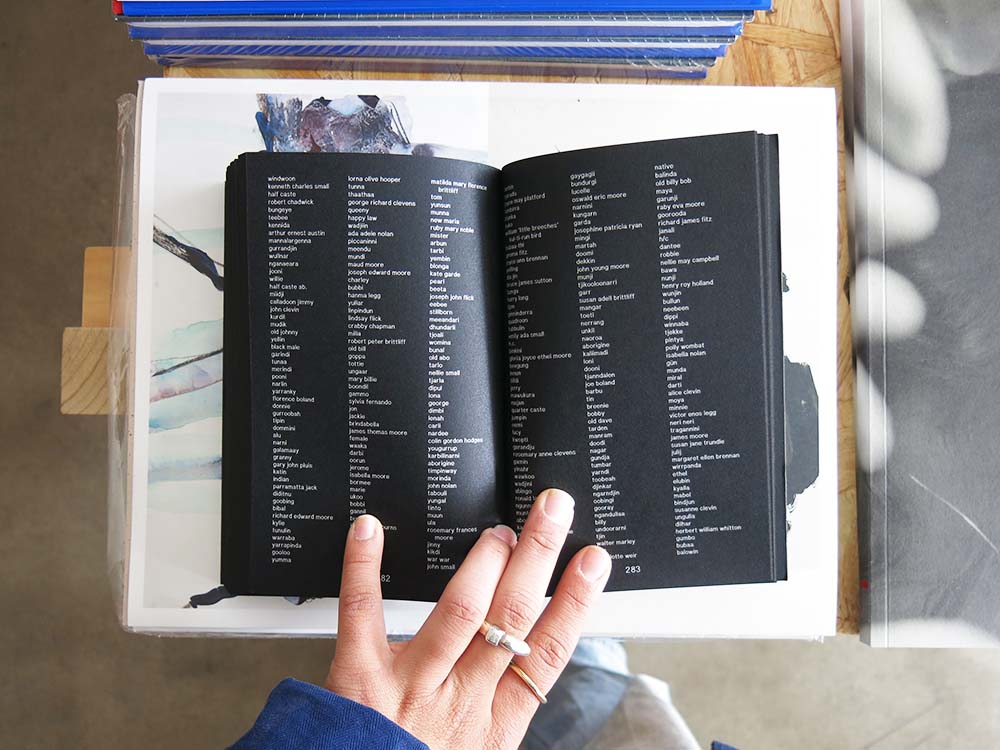 windwoon
kenneth charles small
half caste
robert chadwick
bungeye
teebee
kennida
arthur ernest austin
mannalargenna
gurrandjin
wulinar
nganaeara
jooni
willie
half caste ab.
miidji
calladoon jimmy
john clevin
kurdil
mudik
old johnny
yellin
black male
garindi
tunaa
merindi
pooni
narlin
yarranky
florence boland
donnie
gurroobah
tipin
dommini
alu
narni
galamaay
granny
gary john pluis
katin
indian
parramatta jack
diditnu
goobing
bibai
richard edward moore
kylie
tunulin
warraba
yarrapinda
gooloo
yumma
lorna olive hooper
tunna
thaathaa
george richard clevens
queeny
happy law
wadjiin
ada adele nolan
piccaninni
meendu
mundi
maud moore
joseph edward moore
charley
bubbi
hanma legg
yullar
linpindun
lindsay flick
crabby chapman
milla
robert peter brittliff
old bill
goppa
tottie
ungaar
mary billie
boondil
gammo
sylvia fernando
jon
jackie
brindabella
james thomas moore
female
waaka
darbi
oorun
jerome
isabella moore
bormee
marie
ukoo
bobbi
matilda mary florence
brittliff
tom
yunsun
munna
new maria
ruby mary noble
mister
arbun
tarbi
yembin
bionga
kate garde
pearl
beeta
joseph john flick
eebee
stillborn
meeandari
dhundarli
tjoali
womina
bunal
old abo
tarlo
nellie small
tjarla
dipul
iona
george
dimbi
lenah
carli
nardee
colin gordon hodges
yougurrup
karbilinarni
aborigine
timpinway
morinda
john nolan
tabouli
yungal
tinto
muun
ula
rosemary frances
moore
jinny
kikdi
war war
john small
82
may platford
william 'little breeches'
bruce james sutton
harry long
ada small
gloria joyce ethel moore
quarter caste
lucy
rosemary anne clevens
gaygagii
bundurgi
lucelle
oswald eric moore
narnini
kungarn
garda
josephine patricia ryan
mingi
martah
doomi
dekkin
john young moore
munji
tjikooloonarri
garr
susan adell brittliff
mangar
toeti
nerrang
unkil
naoroa
aborigine
kaliimadi
loni
dooni
tjanndalen
jon boland
barbu
tin
breenie
bobby
old dave
tarden
manram
doodi
nagar
gundja
tumbar
yarndi
toobeah
djiekar
ngarndjin
oobingi
gooray
ngandulisa
billy
undoorarni
tjin
walter marley
weir
native
balinda
old billy bob
maya
garunji
raby eva moore
goorooda
richard james fitz
janali
h/c
dantee
robbie
nellie may campbell
bawa
nunji
henry roy holland
wunjin
bullun
neebeen
dippi
winnaba
tjekke
pintya
polly wombat
isabella nolan
gün
munda
miral
darti
alice clevin
moya
minnie
victor enos legg
neri neri
tragannini
james moore
susan jane trundle
julij
margaret ellen brennan
wirrpanda
ethel
elubin
kyalla
mabel
bindjun
susanne clevin
ungulla
dilhar
herbert william whitton
gumbo
bubaa
balowin
283